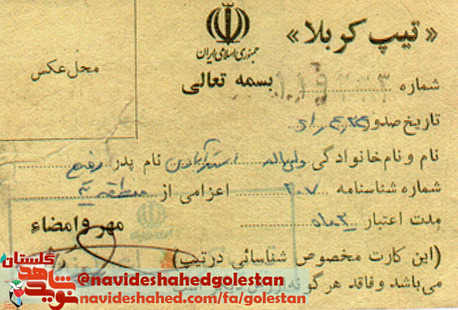 « تیپ کربلا »
جمهوری اسلامی ایران
بسمه تعالی
محل عکس
شماره
تاریخ صدور
نام و نام خانوادگی ولی اله استرآبادی نام پدر رفیع
شماره شناسنامه ۲۰۷ اعزامی از منطقه ۳
مدت اعتبار ۳ ماه
مهر و امضاء
(این کارت مخصوص شناسائی در تیپ)
می‌باشد و فاقد هرگونه است
گلستان
نوید شاهد
@navideshahedgolestan
navideshahed.com/fa/golestan